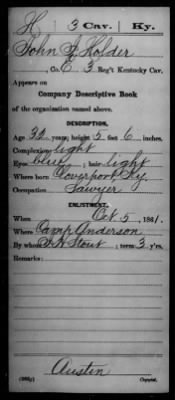 H | 3 Cav. | Ky.
John F Holder
, Co. E 3 Reg't Kentucky Cav.
Appears on
Company Descriptive Book
of the organization named above.
DESCRIPTION.
Age 32 years; height 5 feet 6 inches.
Complexion light
Eyes blue; hair light
Where born Cloverport Ky.
Occupation Sawyer
ENLISTMENT.
When Oct 5, 1861.
Where Camp Anderson
By whom Stout; term 3 y'rs.
Remarks:
Austin
Copyist.